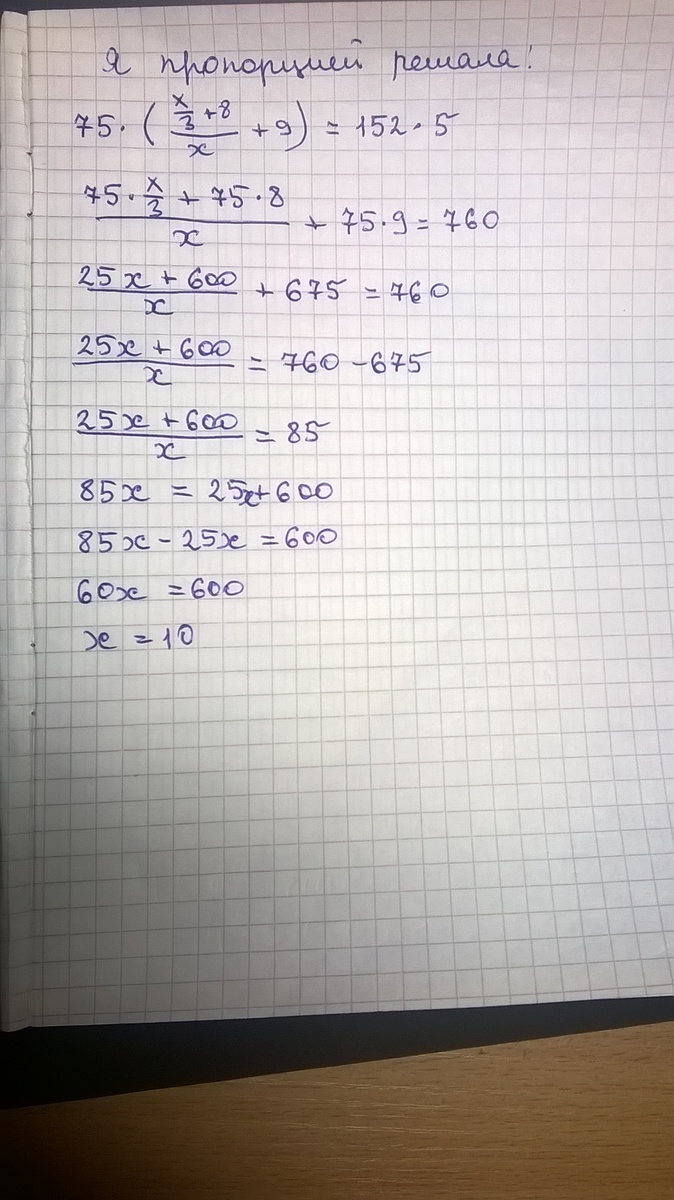 Я пропорцией решала!
75 · ( (x/3 + 8)/x + 9 ) = 152 · 5
(75 · x/3 + 75 · 8)/x + 75 · 9 = 760
(25x + 600)/x + 675 = 760
(25x + 600)/x = 760 - 675
(25x + 600)/x = 85
85x = 25x + 600
85x - 25x = 600
60x = 600
x = 10